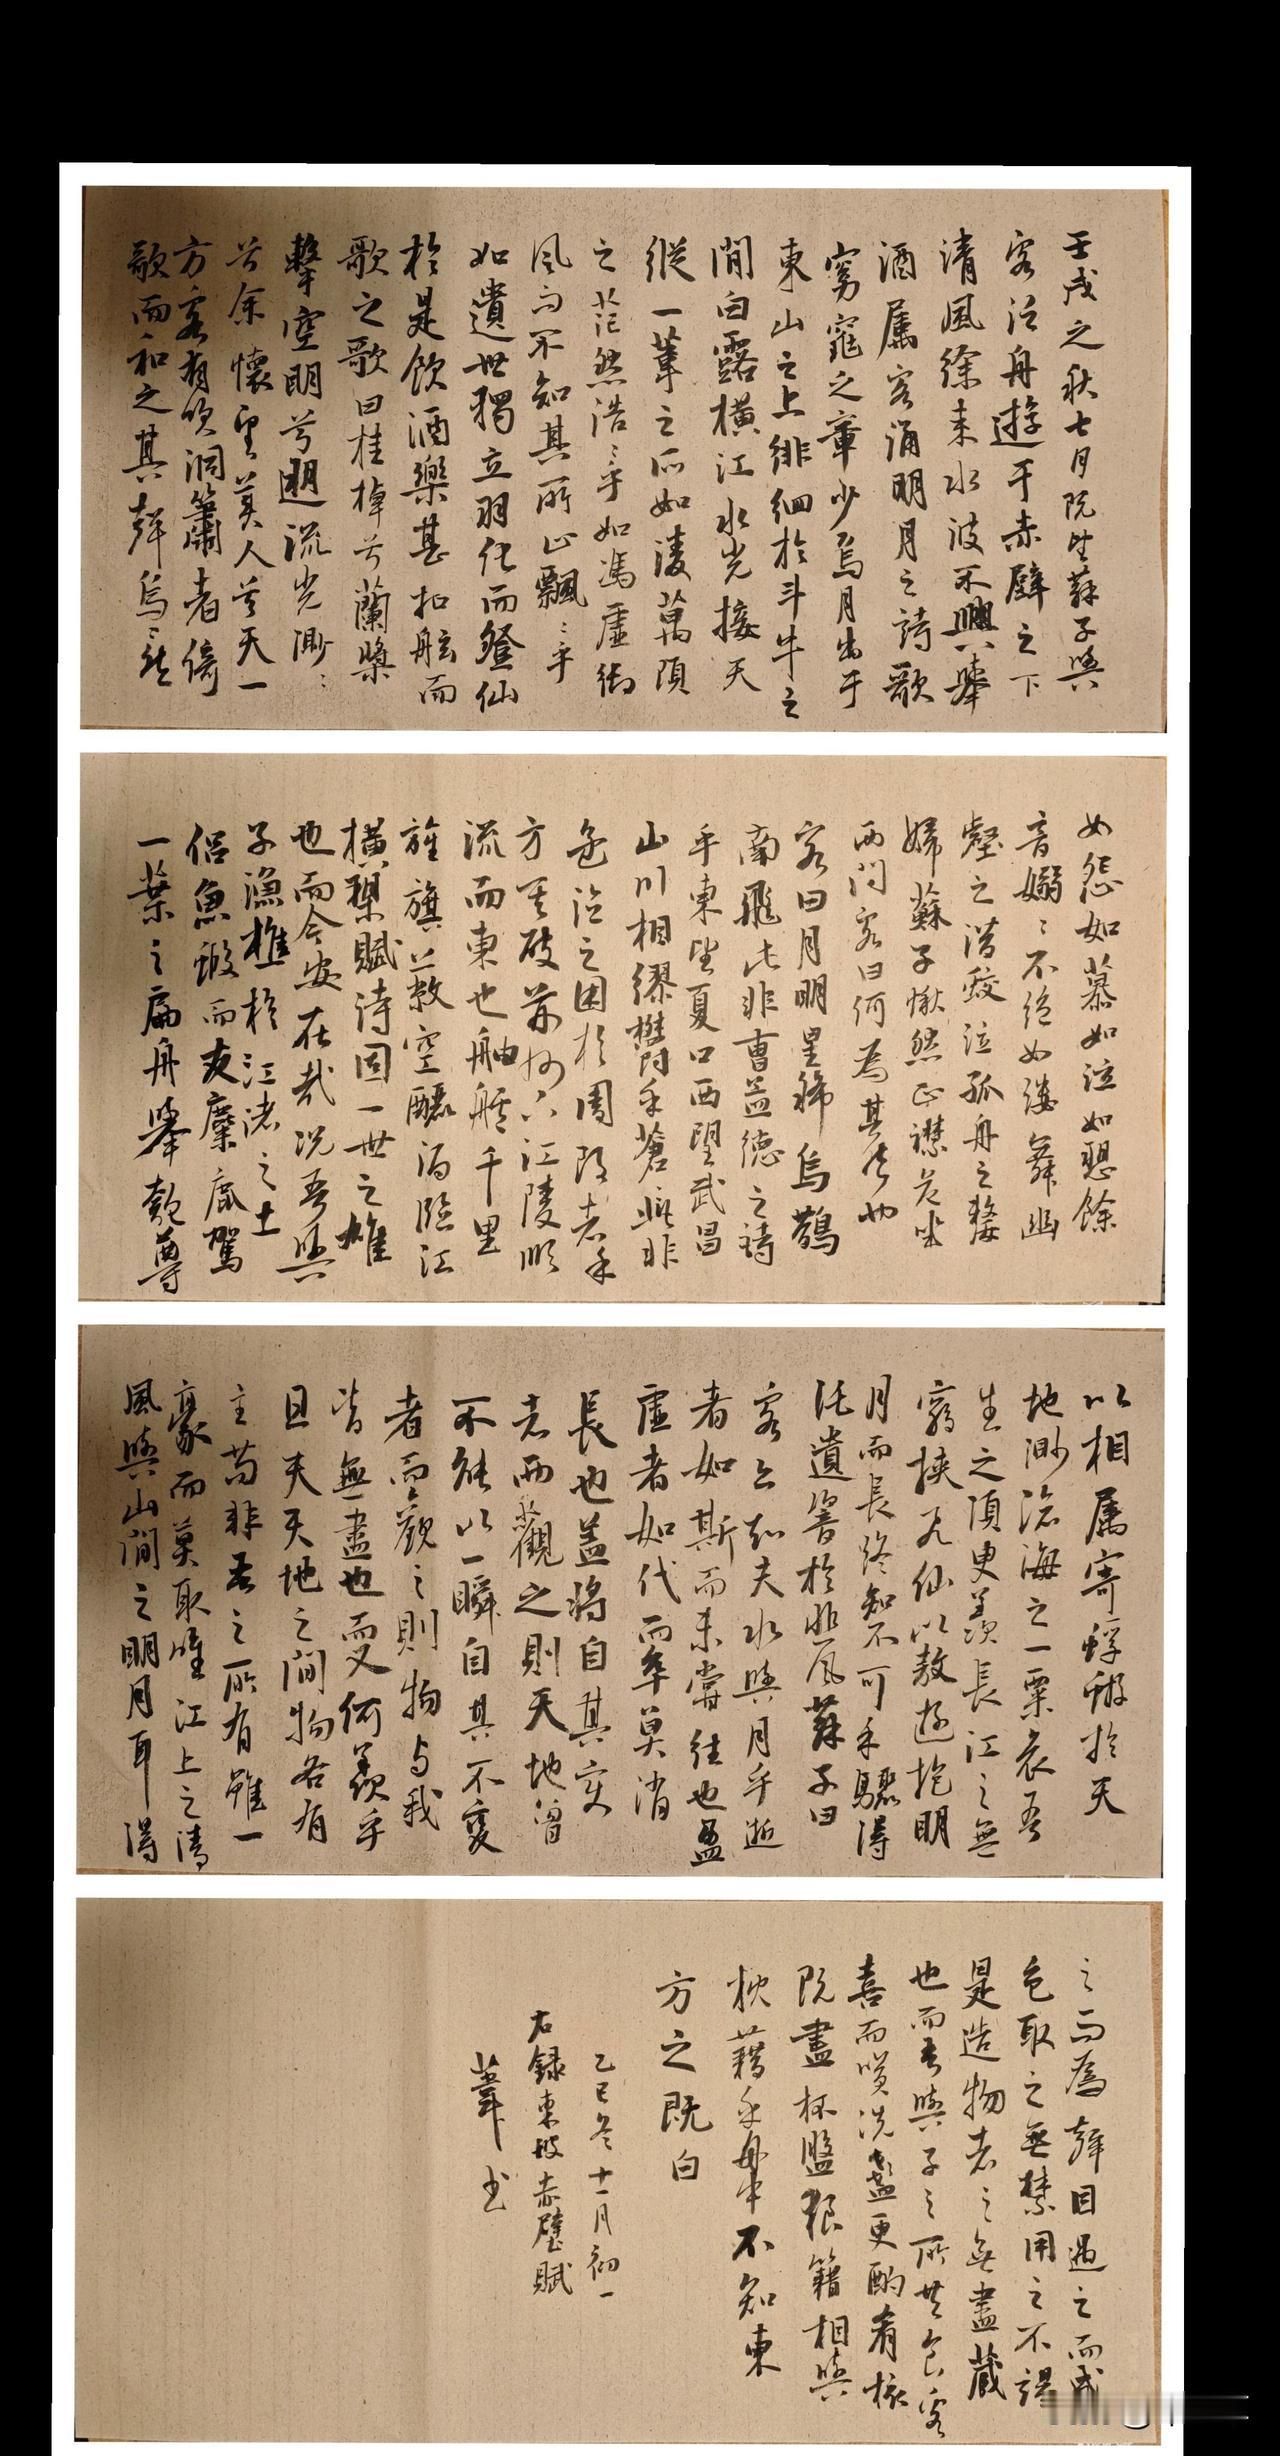 壬戌之秋七月既望蘇子與
客泛舟遊于赤壁之下
清風徐來水波不興舉
酒属客誦明月之詩歌
窈窕之章少焉月出于
東山之上徘徊於斗牛之
間白露横江水光接天
縱一葦之所如凌萬頃
之茫然浩〻乎如馮虚御
風而不知其所止飄〻乎
如遺世獨立羽化而登仙
於是飲酒樂甚扣舷而
歌之歌曰桂棹兮蘭槳
擊空明兮遡流光渺〻
兮余懷望美人兮天一
方客有吹洞簫者倚
歌而和之其聲烏〻然
如怨如慕如泣如愬餘
音嫋〻不絶如縷舞幽
壑之潛蛟泣孤舟之嫠
婦蘇子愀然正襟危坐
而問客曰何為其然也
客曰月明星稀烏鵲
南飛此非曹孟德之詩
乎東望夏口西望武昌
山川相繆欝乎蒼〻此非
孟德之困於周郎者乎
方其破荆州下江陵順
流而東也舳艫千里
旌旗蔽空釃酒臨江
横槊賦詩固一世之雄
也而今安在哉况吾與
子漁樵於江渚之上
侣魚蝦而友麋鹿駕
一葉之扁舟舉匏尊
以相属寄蜉蝣於天
地渺滄海之一粟哀吾
生之須臾羨長江之無
窮挟飛仙以敖遊抱明
月而長終知不可乎驟得
託遺響於悲風蘇子曰
客亦知夫水與月乎逝
者如斯而未嘗往也盈
虚者如代而卒莫消
長也盖將自其變
者而觀之則天地曾
不能以一瞬自其不變
者而觀之則物与我
皆無盡也而又何羨乎
且夫天地之間物各有
主苟非吾之所有雖一
豪而莫取惟江上之清
風與山間之明月耳得
之而為聲目遇之而成
色取之無禁用之不竭
是造物者之無盡藏
也而吾與子之所共食客
喜而笑洗盞更酌肴核
既盡杯盤狼籍相與
枕藉乎舟中不知東
方之既白
乙巳冬十一月初一
右録東坡赤壁賦
葦书